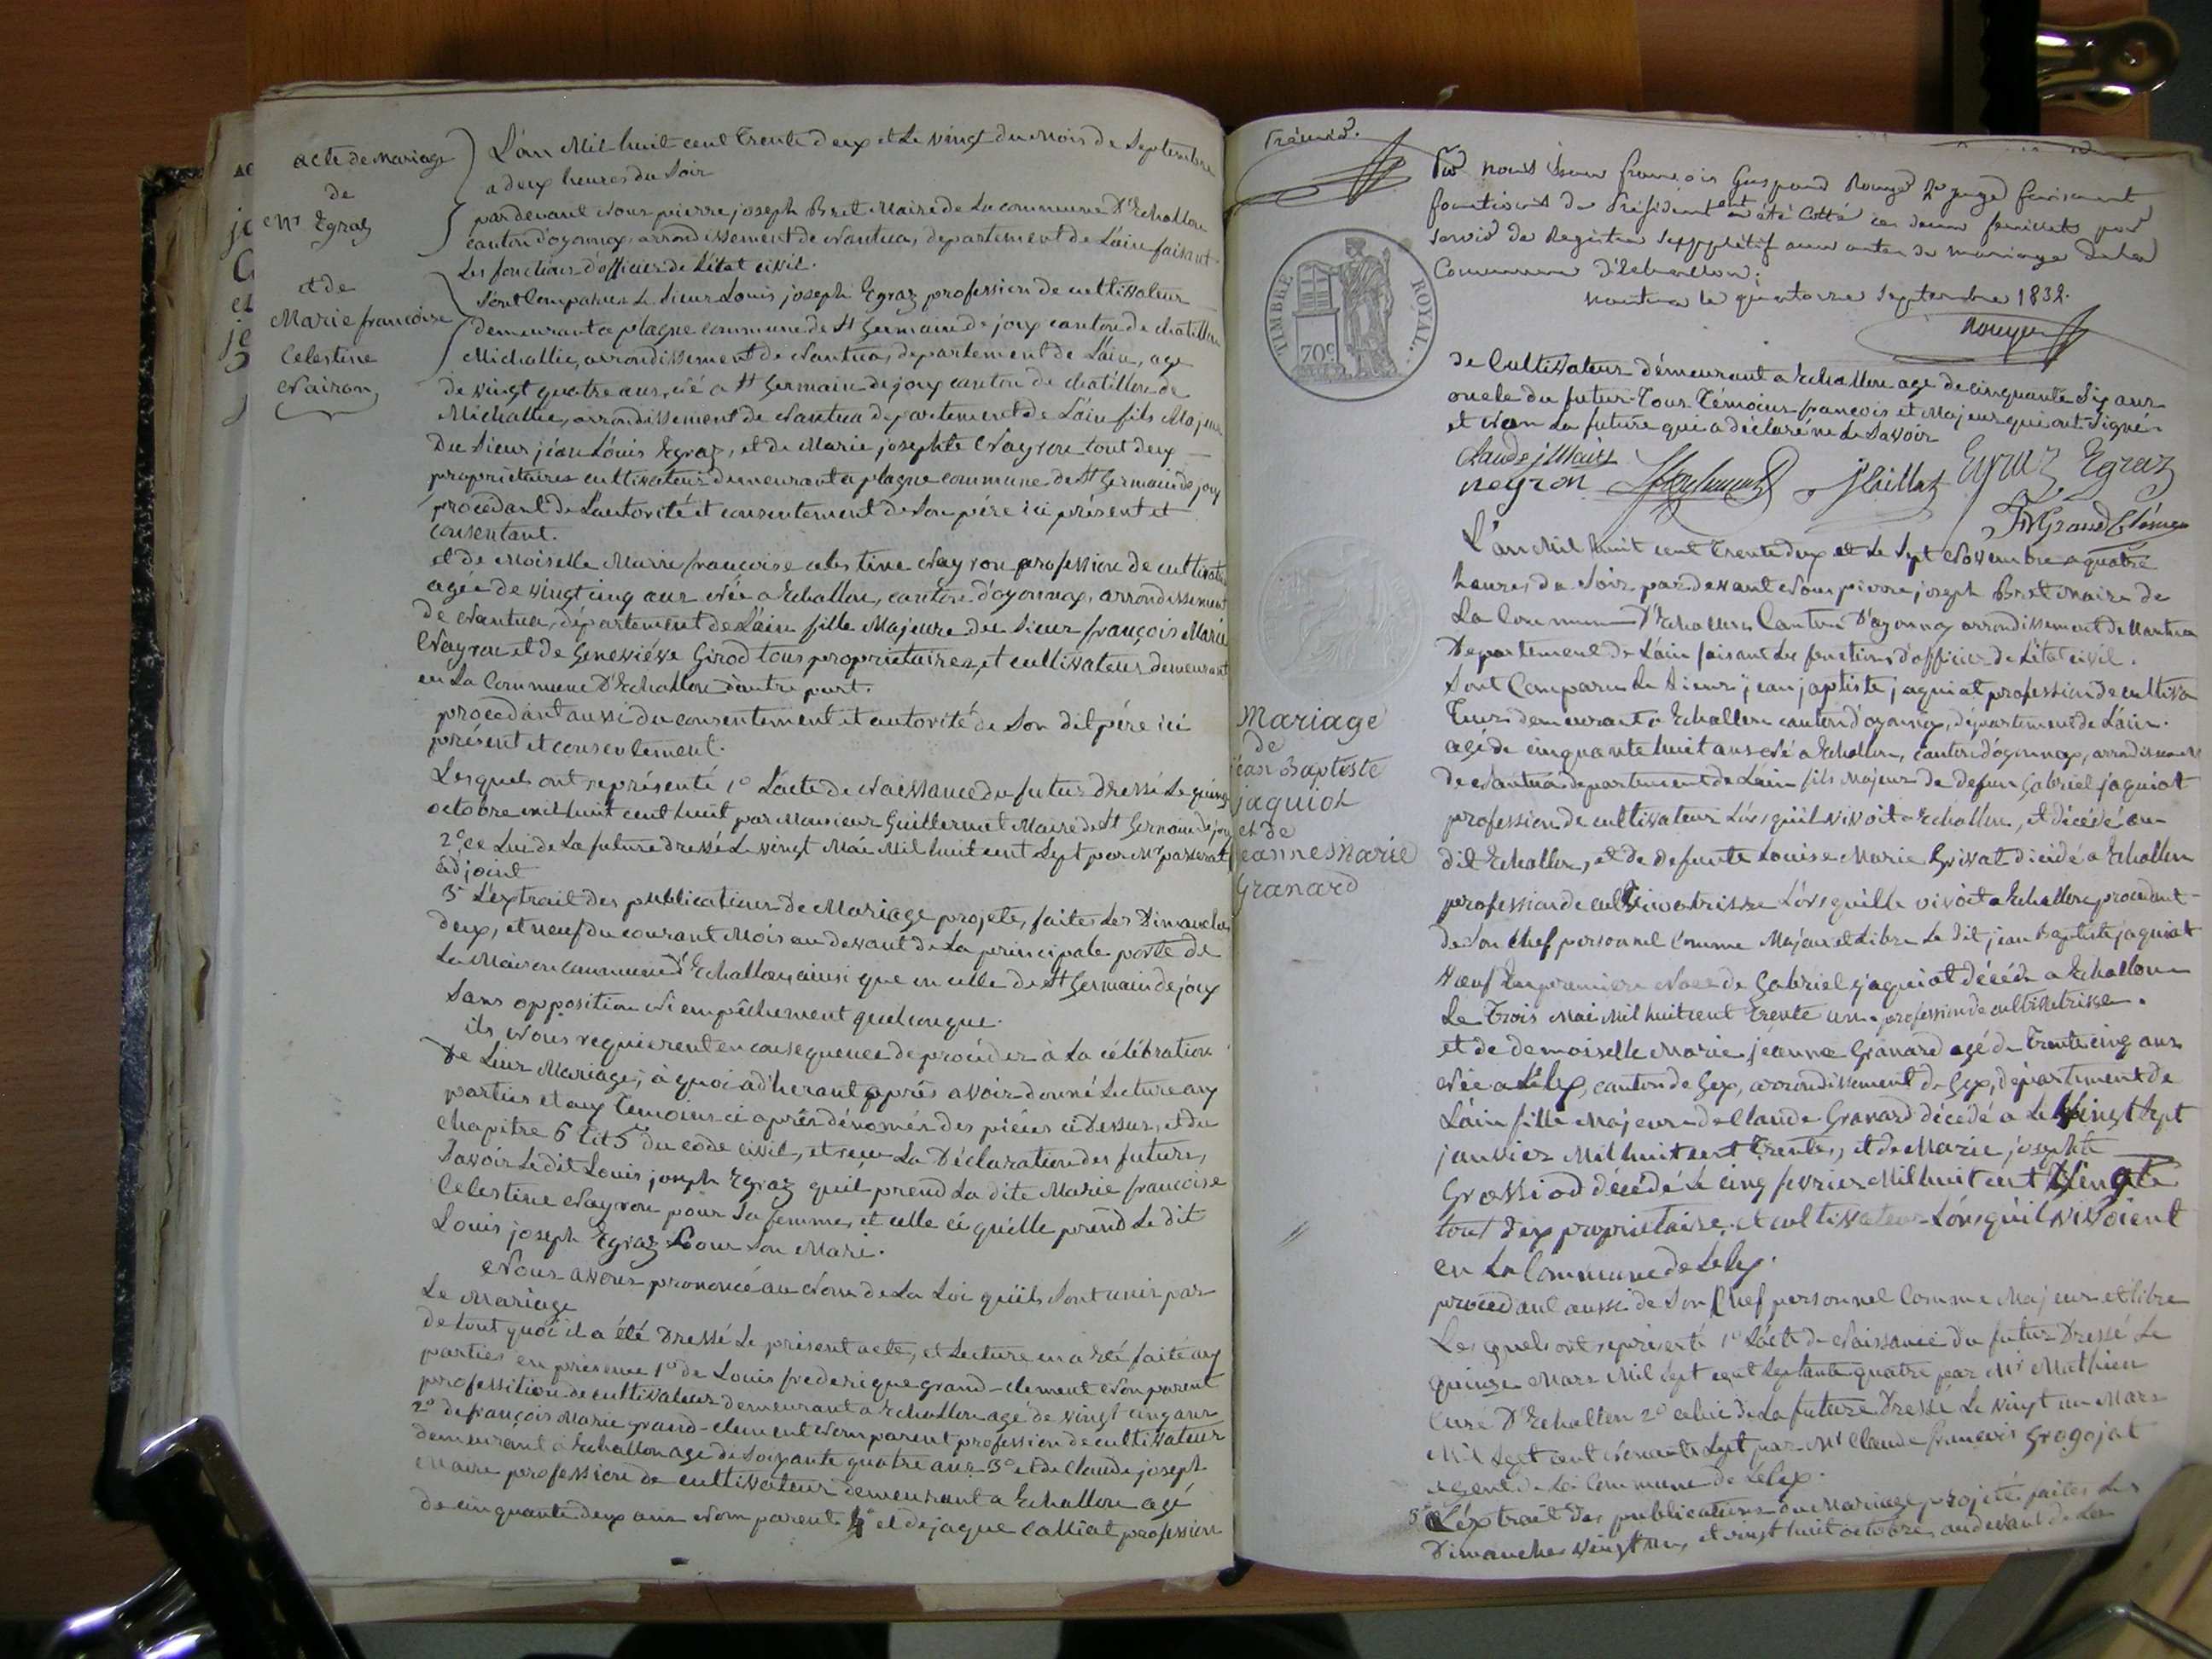 acte de Mariage
de
Mr Egraz
et de
Marie francoise
Celestine
Nairon
L'an Mil huit cent Trente deux et Le vingt du Mois de Septembre
a deux heures du Soir
pardevant Nous pierre joseph Bret Maire de La commune D'Echallon
canton d'oyonnax, arrondissement de Nantua, departement de L'ain faisant
Les fonctions d'officier de L'état civil.
Sont Comparus Le Sieur Louis joseph Egraz profession de cultivateur
demeurant a plagne commune de St Germain de joux canton de chatillon
Michallie, arrondissement de Nantua, departement de L'ain, age
de vingt quatre ans, né a St Germain de joux canton de chatillon de
Michallie, arrondissement de Nantua departement de L'ain fils Majeur
Du Sieur jéan Louis Egraz, et de Marie josephte Nayron tout deux
propriétaires cultivateurs demeurant a plagne commune de St Germain de joux
procedant de L'autorité et consentement de Son pére ici présent et
consentant.
et de Moiselle Marie françoise celestine Nayron profession de cultivatr
agée de vingt cinq ans Née a Echallon, canton d'oyonnax, arrondissement
de Nantua, département de L'ain fille Majeure du Sieur françois Marie
Nayron et de Geneviéve Girod tous proprietaires, et cultivateurs demeurant
en La Commune D'Echallon d'autre part.
procedant aussi du consentement et autorité de Son dit pére ici
présent et consentement.
Lesquels ont représenté 1o L'acte de Naissance du futur Dressé Le quinze
octobre mil huit cent huit par Monsieur Guillermet Maire de St Germain de joux
2o ce Lui de La future dressé Le vingt Mai Mil huit cent Sept par Mr passerat
adjoint
3o L'extrait des publications de Mariage projeté, faites Les Dimanches
deux, et neuf du courant Mois au devant de La principale porte de
La Maison commune d'Echallon, ainsi que en celle de St Germain de joux
Sans opposition Ni empêchement quelconque.
ils Nous requierent en consequence de procéder à La célébration
De Leur Mariage; à quoi adhérant aprés avoir donné Lecture aux
parties et aux Temoins ci aprés dénomés des piéces ci Dessus, et du
Chapitre 6 Tit 5 du code civil, et reçu La Déclaration des futurs,
Savoir Le dit Louis joseph Egraz quil prend La dite Marie francoise
Celestine Nayron pour Sa femme, et celle ci qu'elle prend Le dit
Louis joseph Egraz Pour Son Mari.
Nous avons prononcé au Nom de La Loi quïls Sont unis par
Le Mariage
de tout quoi il a été Dressé Le présent acte, et Lecture en a été faite aux
parties en présence 1o de Louis frederique grand-clement Non parent
profession de cultivateur demeurant a Echallon agé de vingt cinq ans
2o de françois Marie grand-clement Nom parent profession de cultivateur
demeurant a Echallon age de Soixante quatre ans 3o et de Claude joseph
Maire profession de cultivateur demeurant a Echallon agé
de cinquante deux ans Nom parent 4o et de jaque Calliat profession
Nous françois Gaspard Rouyer juge faisant
fonctions de Président avons été Cotté ces deux feuillets pour
servir de Registre Supplétif aux actes de mariage de la
Commune d'Echallon;
nantua le quatorze Septembre 1832.
Rouyer
TIMBRE ROYAL.
70c
de Cultivateur démeurant a Echallon age de cinquante Six ans
oncle du futur. Tous Témoins françois et Majeurs qui ont Signé
et Non La future qui a déclaré ne Le Savoir
Claude j Maire
neyron
jCaillat Egraz Egraz
Grand Clément
L'an Mil huit cent trente deux et Le Sept Novembre a quatre
heures du Soir pardevant Nous pierre joseph Bret maire de
La Commune D'Echallon Canton D'oyonnax arrondissement de Nantua
Departement de L'ain faisant Les fonctions d'officier de L'état civil.
Sont Comparus Le Sieur jean japtiste jaquiot profession de cultiva
teur demeurant a Echallon canton d'oyonnax, département de L'ain.
agé de cinquante huit ans Né a Echallon, canton d'oyonnax, arrondissement
de Nantua departement de L'ain fils Majeur de Defun Gabriel jaquiot
profession de cultivateur Lorsquïl vivoit a Echallon, et décédé au
dit Echallon, et de defunte Louise Marie Grivat dicédé a Echallon
profession de cultivatrisse Lorsquille vivoit a Echallon procedant
de Son Chef personnel Comme Majeur et Libre Le dit jean Baptiste jaquiot
Veuf En premiere Noce de Gabriel jaquiot décédé a Echallon
Le Trois Mai Mil huit cent Trente un. profession de cultivatrisse.
et de demoiselle Marie jeanne Granard agé de Trente cinq ans
Née a Lélex, canton de Gex, arrondissement de Gex, département de
L'ain fille Majeure de Claude Granard décédé a Le Vingt Sept
janvier Mil huit cent Trente, et de Marie josephte
Grossiod décédé Le cinq fevrier Mil huit cent Vingt
tout deux proprietaire, et cultivateur Lorsquïl vivoient
en La Commune de Lelex.
procedant aussi de Son Chef personnel Comme Majeur et libre
Les quels ont représenté 1o L'acte de Naissance du futur Dressé Le
quinze Mars Mil Sept cent Septante quatre par Mr Mathieu
Curé D'Echallon 2o celui de La future Dressé Le vingt un Mars
Mil Sept cent Nonante Sept par Mr Claude françois Grogojat
agent de La Commune de Lélex.
3o L'éxtrait des publications du Mariage projeté faites Les
Dimanches vingt un, et vingt huit octobre, au devant de La
Mariage
de
jean Baptiste
jaquiot
et de
jeanne Marie
Granard